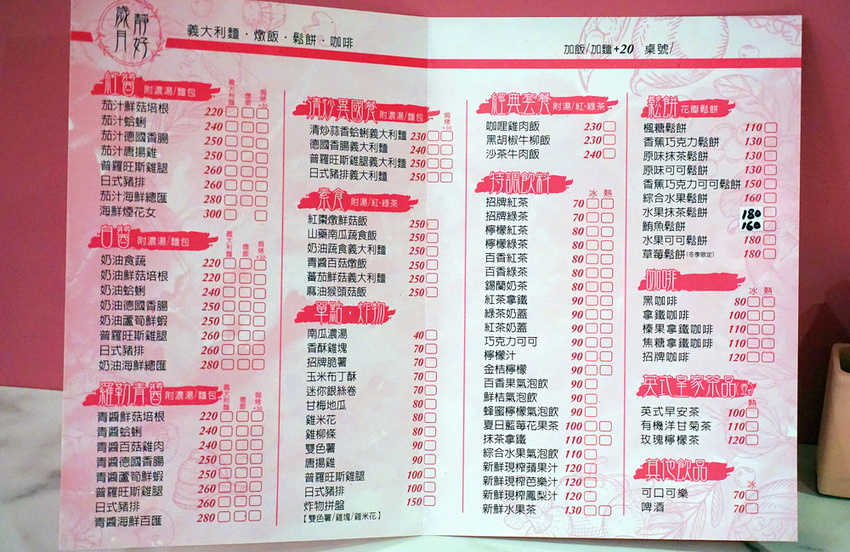 靜好
歲月
義大利麵．燉飯．鬆餅．咖啡
加飯/加麵+20 桌號/
紅醬 附濃湯/麵包 義大利麵 燉飯 焗烤+30
茄汁鮮菇培根 220
茄汁蛤蜊 240
茄汁德國香腸 250
茄汁唐揚雞 250
普羅旺斯雞腿 260
日式豬排 260
茄汁海鮮總匯 280
海鮮煙花女 300
白醬 附濃湯/麵包 義大利麵 燉飯 焗烤+30
奶油食蔬 220
奶油鮮菇培根 220
奶油蛤蜊 240
奶油德國香腸 250
奶油蘆筍鮮蝦 250
普羅旺斯雞腿 260
日式豬排 260
奶油海鮮總匯 280
羅勒青醬 附濃湯/麵包 義大利麵 燉飯 焗烤+30
青醬鮮菇培根 220
青醬蛤蜊 240
青醬百菇雞肉 240
青醬德國香腸 250
青醬蘆筍鮮蝦 250
普羅旺斯雞腿 260
日式豬排 260
青醬海鮮百匯 280
清炒異國餐 附濃湯/麵包 焗烤+30
清炒蒜香蛤蜊義大利麵 230
德國香腸義大利麵 240
普羅旺斯雞腿義大利麵 250
日式豬排義大利麵 250
素食 附湯/紅.綠茶
紅棗燉鮮菇飯 250
山藥南瓜蔬食飯 250
奶油蔬食義大利麵 250
青醬百菇燉飯 250
蕃茄鮮菇義大利麵 250
麻油猴頭菇飯 250
單點．炸物
南瓜濃湯 40
香酥雞塊 70
招牌脆薯 70
玉米布丁酥 70
迷你銀絲卷 70
甘梅地瓜 80
雞米花 80
雞柳條 80
雙色薯 90
唐揚雞 90
普羅旺斯雞腿 100
日式豬排 100
炸物拼盤 150
【雙色薯/雞塊/雞米花】
經典套餐 附湯/紅.綠茶
咖哩雞肉飯 230
黑胡椒牛柳飯 230
沙茶牛肉飯 240
特調飲料 冰 熱
招牌紅茶 70
招牌綠茶 70
檸檬紅茶 80
檸檬綠茶 80
百香紅茶 80
百香綠茶 80
錫蘭奶茶 80
紅茶拿鐵 90
綠茶奶蓋 90
紅茶奶蓋 90
巧克力可可 90
檸檬汁 90
金桔檸檬 90
百香果氣泡飲 90
鮮桔氣泡飲 90
蜂蜜檸檬氣泡飲 90
夏日藍莓花果茶 100
抹茶拿鐵 110
綜合水果氣泡飲 110
新鮮現榨蘋果汁 120
新鮮現榨芭樂汁 120
新鮮現榨鳳梨汁 120
新鮮水果茶 130
鬆餅 花瓣鬆餅
楓糖鬆餅 110
香蕉巧克力鬆餅 130
原味抹茶鬆餅 130
原味可可鬆餅 130
香蕉巧克力可可鬆餅 150
綜合水果鬆餅 160
水果抹茶鬆餅 180
鮪魚鬆餅 160
水果可可鬆餅 180
草莓鬆餅(冬季限定) 180
咖啡 冰 熱
黑咖啡 80
拿鐵咖啡 100
榛果拿鐵咖啡 110
焦糖拿鐵咖啡 110
招牌咖啡 120
英式皇家茶品 熱
英式早安茶 100
有機洋甘菊茶 110
玫瑰檸檬茶 120
其他飲品 冰
可口可樂 70
啤酒 70